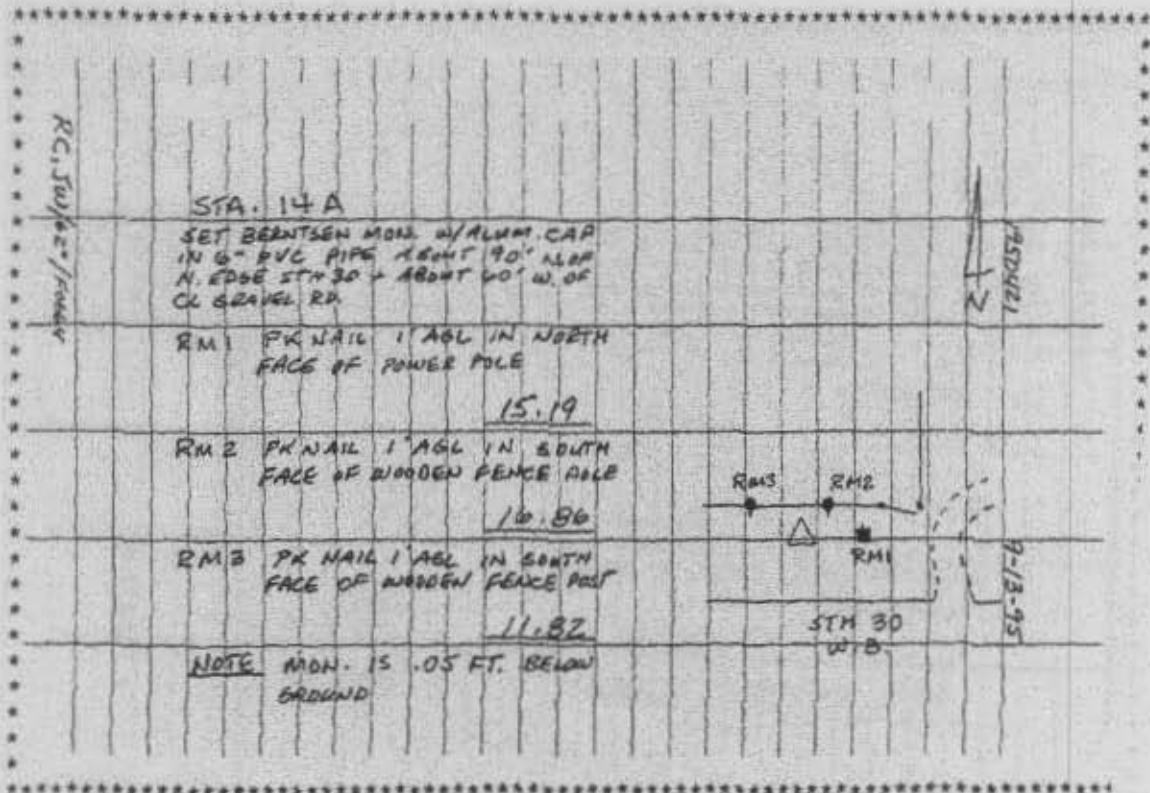 STA. 14 A
SET BERNTSEN MON. W/ALUM. CAP
IN 6" PVC PIPE ABOUT 90' N. OF
N. EDGE STH 30 + ABOUT 60' W. OF
CL GRAVEL RD.
RM 1 PK NAIL 1' AGL IN NORTH
FACE OF POWER POLE
15.19
RM 2 PK NAIL 1' AGL IN SOUTH
FACE OF WOODEN FENCE POLE
16.86
RM 3 PK NAIL 1' AGL IN SOUTH
FACE OF WOODEN FENCE POST
11.82
NOTE MON. IS .05 FT. BELOW
GROUND
N
RM3 RM2
RM1
STH 30
W.B.
9-13-95